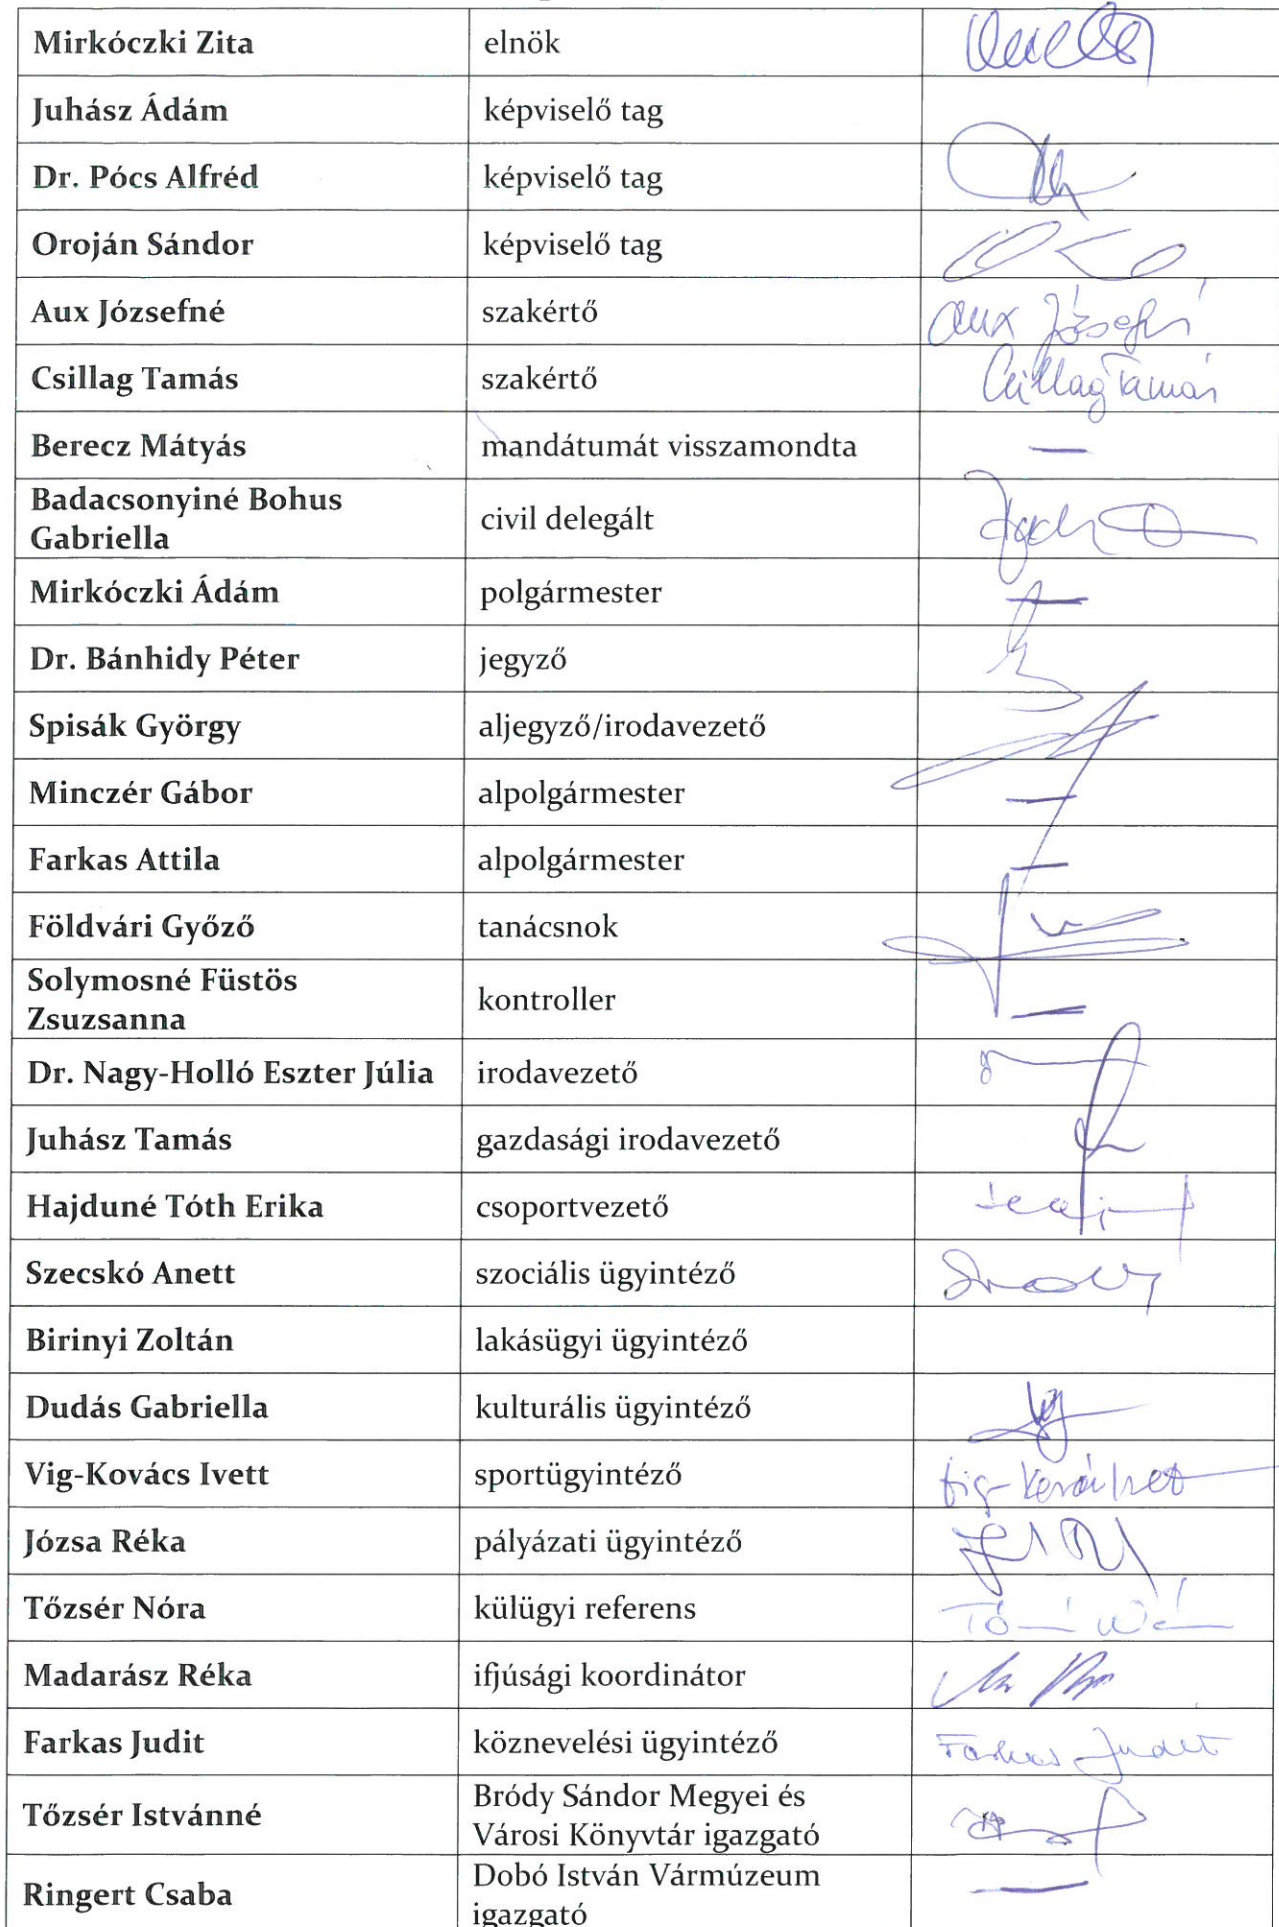 Mirkóczki Zita elnök
Juhász Ádám képviselő tag
Dr. Pócs Alfréd képviselő tag
Oroján Sándor képviselő tag
Aux Józsefné szakértő Aux Józsefné
Csillag Tamás szakértő Csillag Tamás
Berecz Mátyás mandátumát visszamondta —
Badacsonyiné Bohus
Gabriella civil delegált
Mirkóczki Ádám polgármester —
Dr. Bánhidy Péter jegyző
Spisák György aljegyző/irodavezető
Minczér Gábor alpolgármester —
Farkas Attila alpolgármester —
Földvári Győző tanácsnok
Solymosné Füstös
Zsuzsanna kontroller —
Dr. Nagy-Holló Eszter Júlia irodavezető
Juhász Tamás gazdasági irodavezető
Hajduné Tóth Erika csoportvezető
Szecskó Anett szociális ügyintéző
Birinyi Zoltán lakásügyi ügyintéző
Dudás Gabriella kulturális ügyintéző
Vig-Kovács Ivett sportügyintéző Vig-Kovács Ivett
Józsa Réka pályázati ügyintéző
Tőzsér Nóra külügyi referens
Madarász Réka ifjúsági koordinátor
Farkas Judit köznevelési ügyintéző Farkas Judit
Tőzsér Istvánné Bródy Sándor Megyei és
Városi Könyvtár igazgató
Ringert Csaba Dobó István Vármúzeum —
igazgató